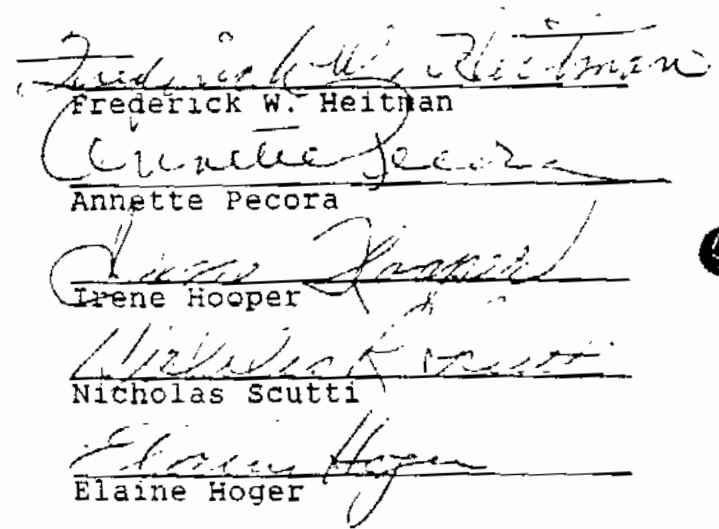 Frederick W. Heitman
Frederick W. Heitman
Annette Pecora
Annette Pecora
Irene Hooper
Irene Hooper
Nicholas Scutti
Elaine Hoger
Elaine Hoger